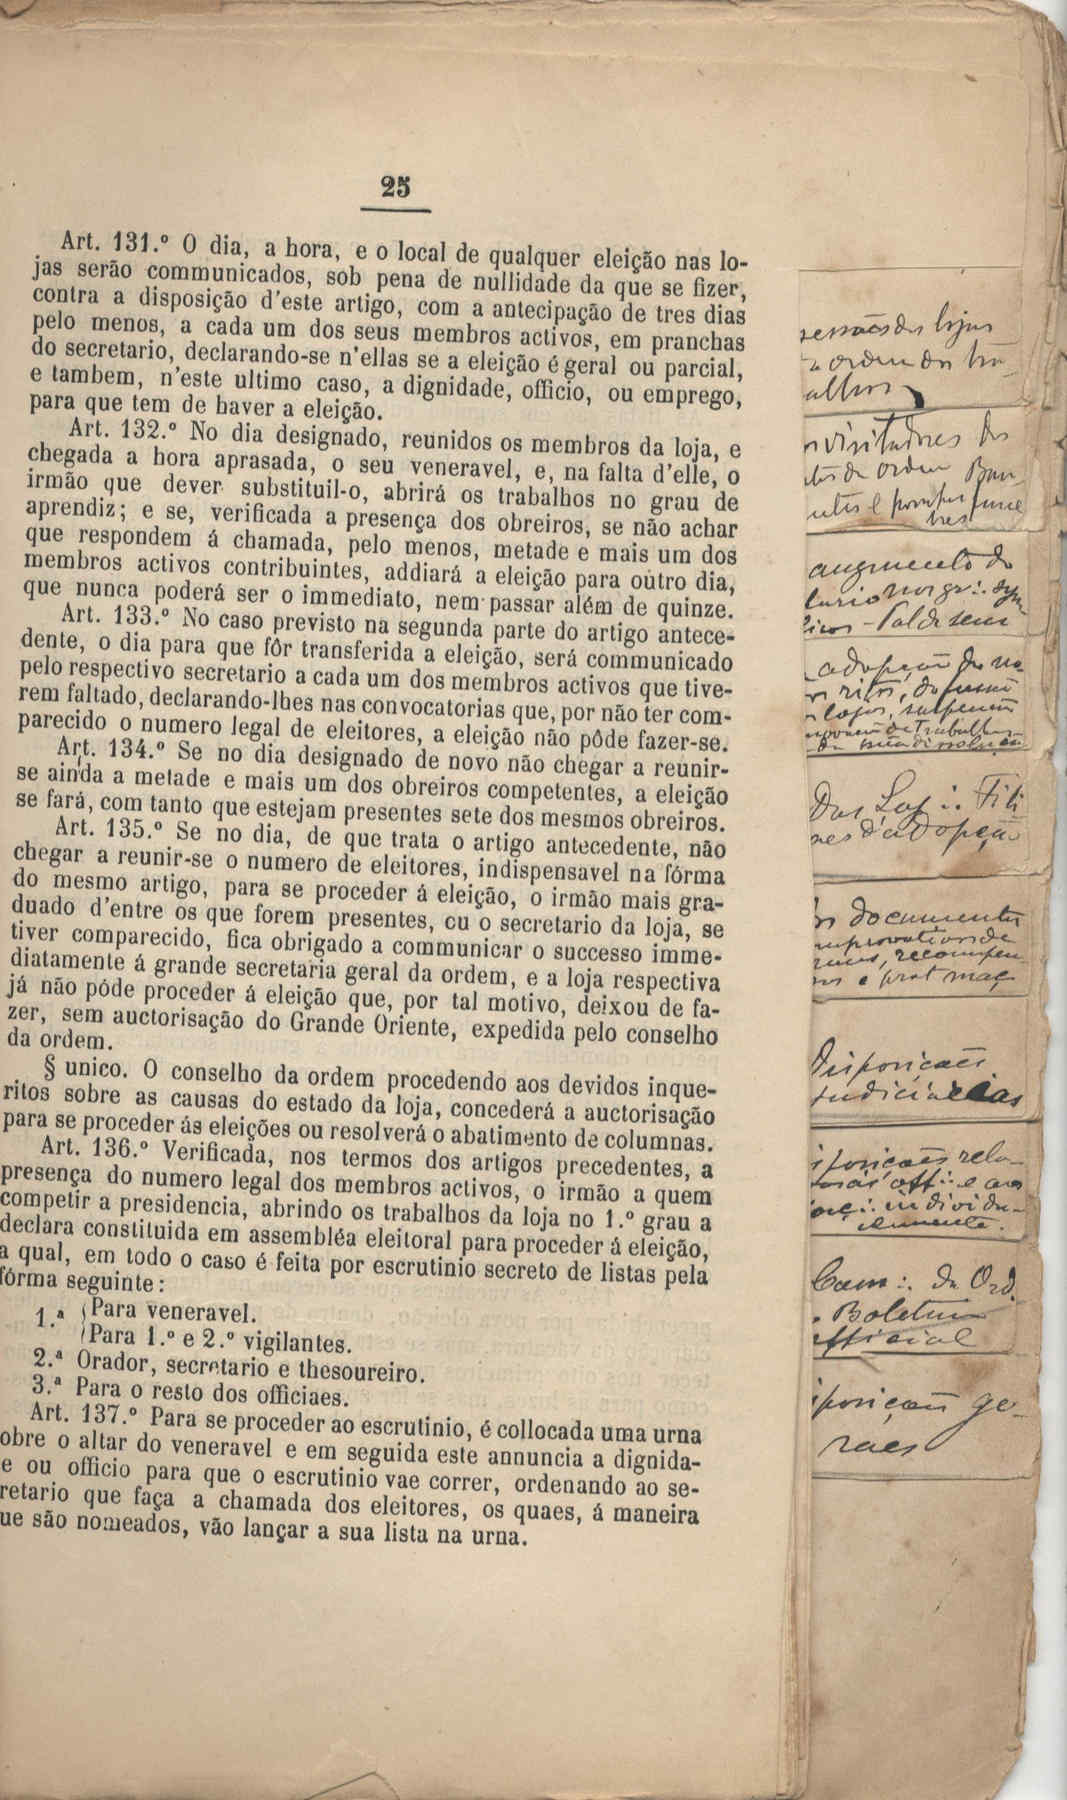 25
Art. 131.º O dia, a hora, e o local de qualquer eleição nas lo-
jas serão communicados, sob pena de nullidade da que se fizer,
contra a disposição d'este artigo, com a antecipação de tres dias
pelo menos, a cada um dos seus membros activos, em pranchas
do secretario, declarando-se n'ellas se a eleição é geral ou parcial,
e tambem, n'este ultimo caso, a dignidade, officio, ou emprego,
para que tem de haver a eleição.
Art. 132.º No dia designado, reunidos os membros da loja, e
chegada a hora aprasada, o seu veneravel, e, na falta d'elle, o
irmão que dever substituil-o, abrirá os trabalhos no grau de
aprendiz; e se, verificada a presença dos obreiros, se não achar
que respondem á chamada, pelo menos, metade e mais um dos
membros activos contribuintes, addiará a eleição para outro dia,
que nunca poderá ser o immediato, nem passar além de quinze.
Art. 133.º No caso previsto na segunda parte do artigo antece-
dente, o dia para que fôr transferida a eleição, será communicado
pelo respectivo secretario a cada um dos membros activos que tive-
rem faltado, declarando-lhes nas convocatorias que, por não ter com-
parecido o numero legal de eleitores, a eleição não pôde fazer-se.
Art. 134.º Se no dia designado de novo não chegar a reunir-
se ainda a metade e mais um dos obreiros competentes, a eleição
se fará, com tanto que estejam presentes sete dos mesmos obreiros.
Art. 135.º Se no dia, de que trata o artigo antecedente, não
chegar a reunir-se o numero de eleitores, indispensavel na fórma
do mesmo artigo, para se proceder á eleição, o irmão mais gra-
duado d'entre os que forem presentes, cu o secretario da loja, se
tiver comparecido, fica obrigado a communicar o successo imme-
diatamente á grande secretaria geral da ordem, e a loja respectiva
já não póde proceder á eleição que, por tal motivo, deixou de fa-
zer, sem auctorisação do Grande Oriente, expedida pelo conselho
da ordem.
§ unico. O conselho da ordem procedendo aos devidos inque-
ritos sobre as causas do estado da loja, concederá a auctorisação
para se proceder ás eleições ou resolverá o abatimento de columnas.
Art. 136.º Verificada, nos termos dos artigos precedentes, a
presença do numero legal dos membros activos, o irmão a quem
competir a presidencia, abrindo os trabalhos da loja no 1.º grau a
declara constituida em assembléa eleitoral para proceder á eleição,
a qual, em todo o caso é feita por escrutinio secreto de listas pela
fórma seguinte:
1.ª Para veneravel.
Para 1.º e 2.º vigilantes.
2.ª Orador, secretario e thesoureiro.
3.ª Para o resto dos officiaes.
Art. 137.º Para se proceder ao escrutinio, é collocada uma urna
obre o altar do veneravel e em seguida este annuncia a dignida-
e ou officio para que o escrutinio vae correr, ordenando ao se-
retario que faça a chamada dos eleitores, os quaes, á maneira
ue são nomeados, vão lançar a sua lista na urna.
sessões das lojas
ordem dos tra-
alhos
visitadores dos
da ordem
augmento do
adopção de no
ritos,
lojas,
Das Loj∴ Fili
aes d'adopção
documentos
Disposições
judiciarias
posições rela-
off∴ e
individu-
almente.
Cam∴ da Ord.
Boletim
official
posições ge-
raes